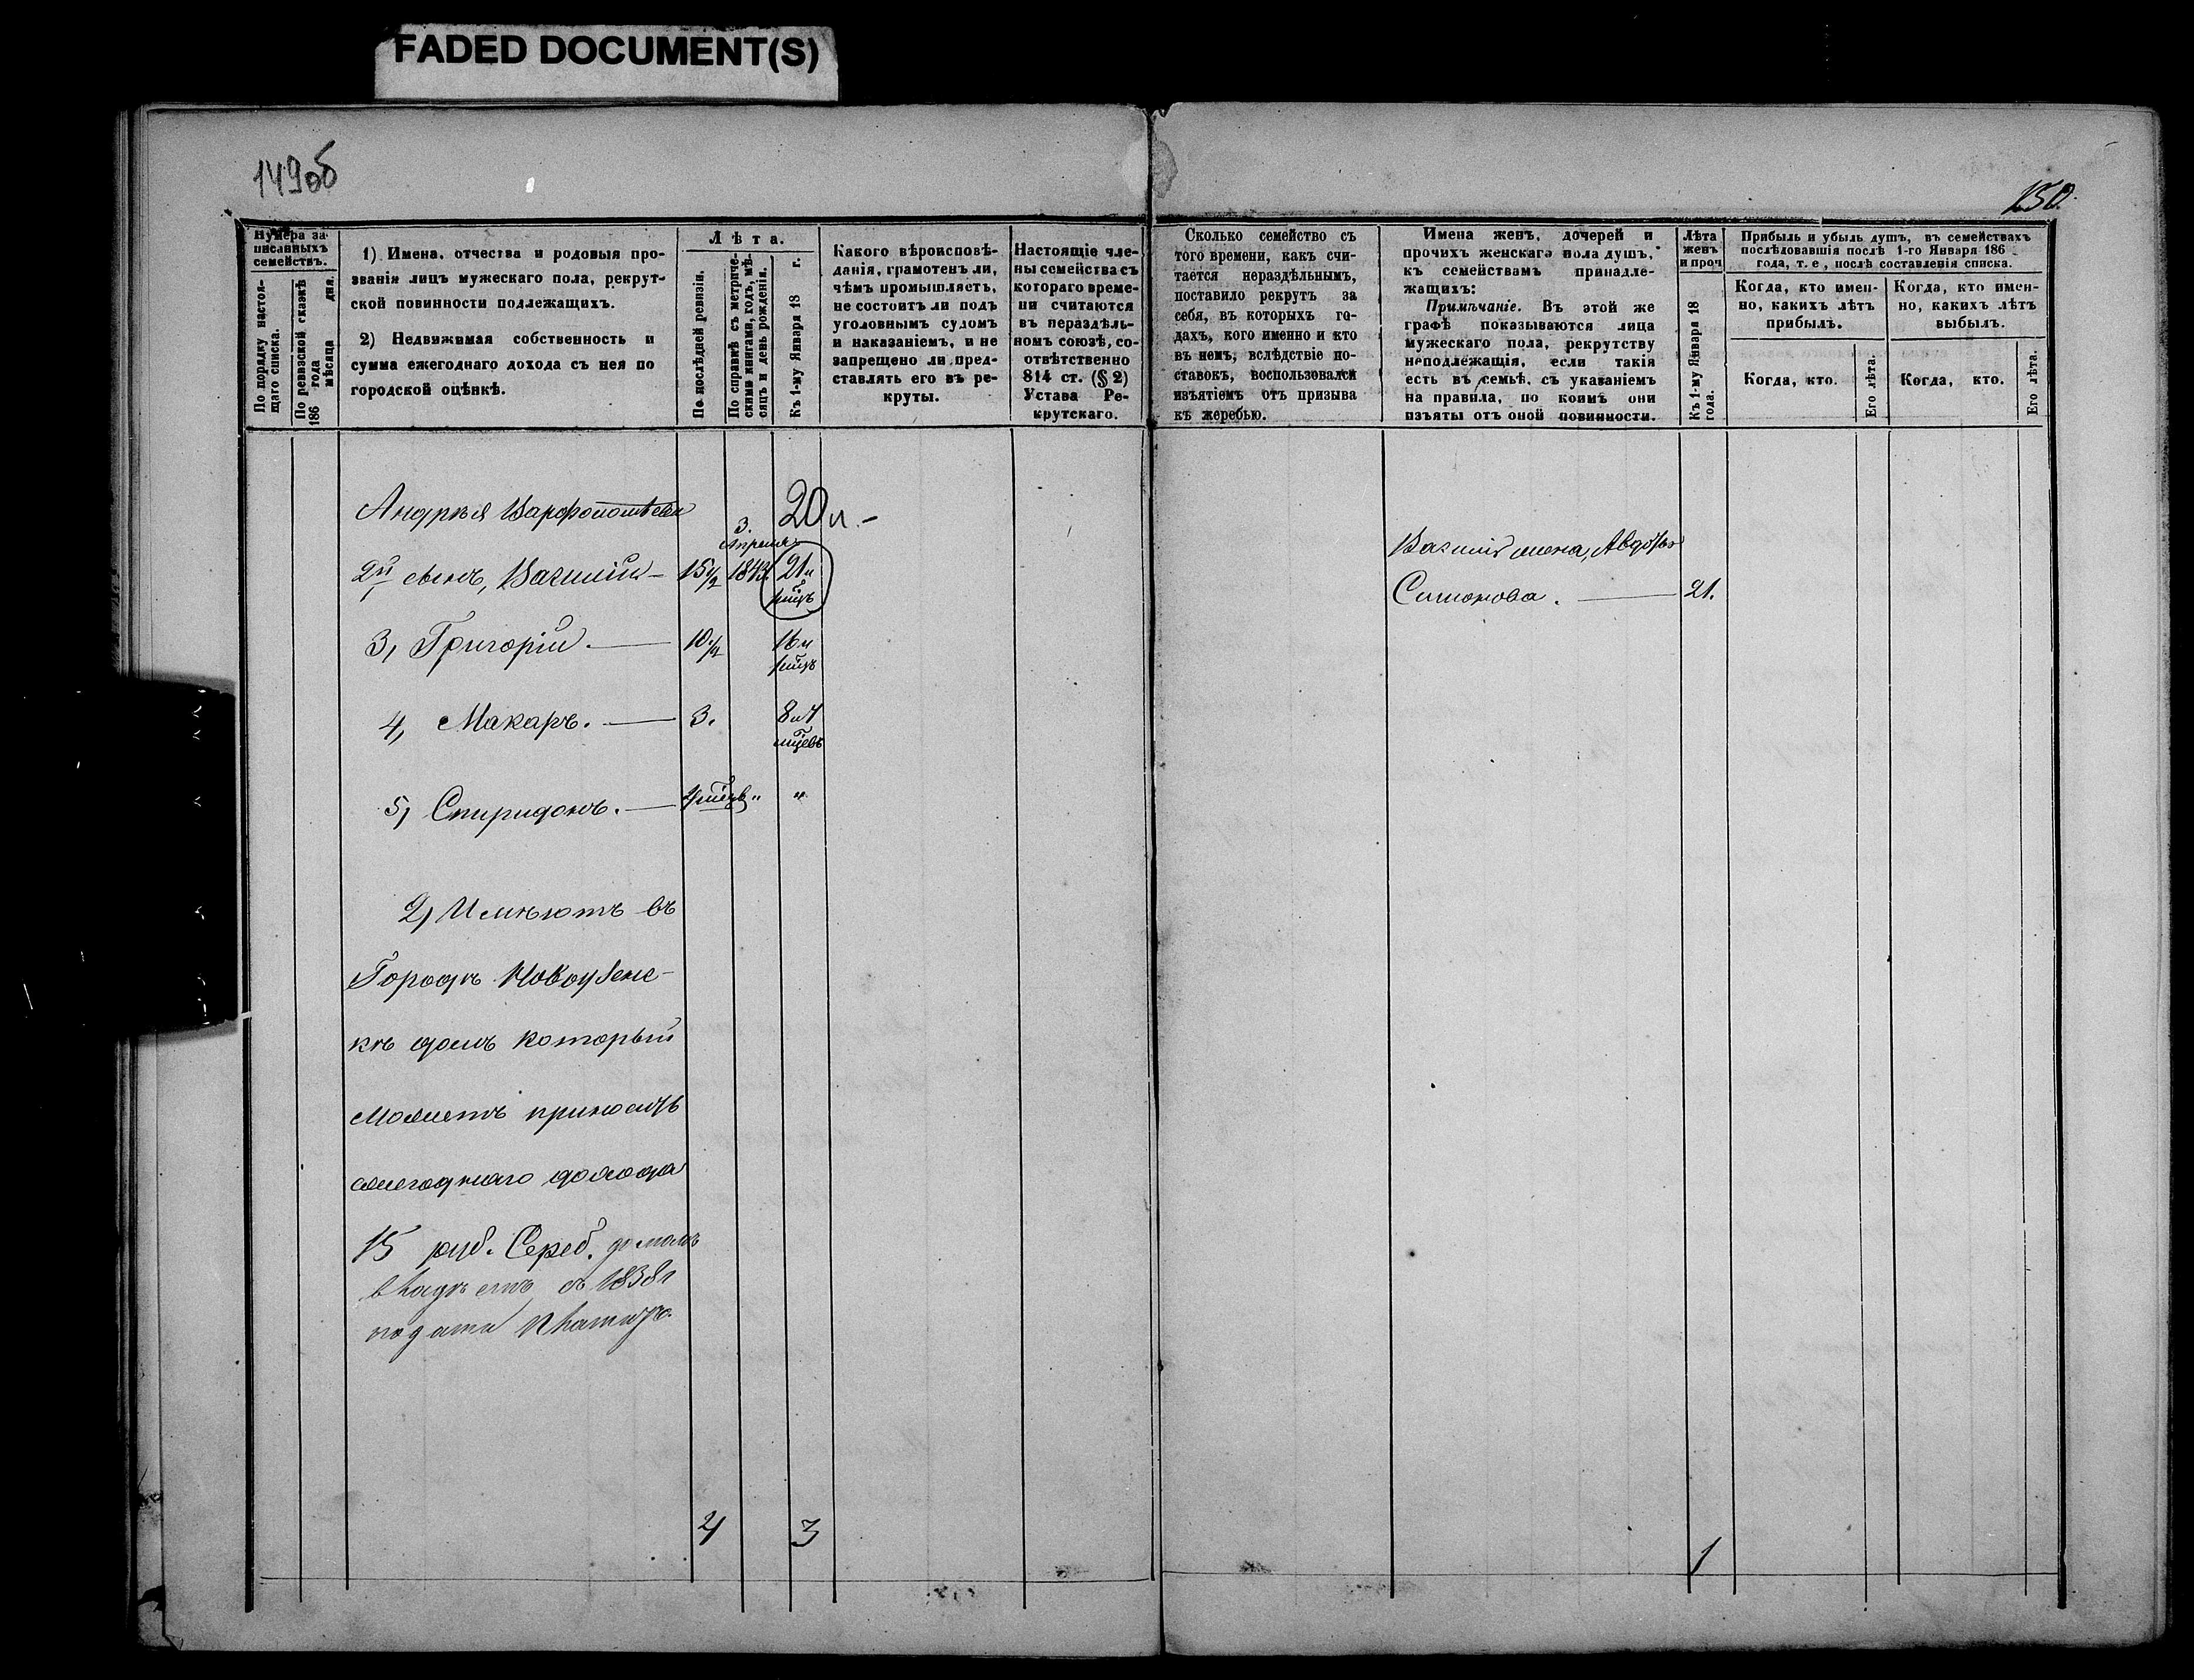 FADED DOCUMENT(S)
149об
150.
Нумера за-
писанныхъ
семействъ.
По порядку настоя-
щаго списка.
По ревизской сказкѣ
186 года
мѣсяца дня.
1) Имена, отчества и родовыя про-
званія лицъ мужескаго пола, рекрут-
ской повинности подлежащихъ.
2) Недвижимая собственность и
сумма ежегоднаго дохода съ нея по
городской оцѣнкѣ.
Лѣта.
По послѣдней ревизіи.
По справкѣ съ метриче-
скими книгами, годъ, мѣ-
сяцъ и день рожденія.
Къ 1-му Января 18 г.
Какого вѣроисповѣ-
данія, грамотенъ ли,
чѣмъ промышляетъ,
не состоитъ ли подъ
уголовнымъ судомъ
и наказаніемъ, и не
запрещено ли пред-
ставлять его въ ре-
круты.
Настоящіе чле-
ны семейства съ
котораго време-
ни считаются
въ нераздѣль-
номъ союзѣ, со-
отвѣтственно
814 ст. (§ 2)
Устава Ре-
крутскаго.
Сколько семейство съ
того времени, какъ счи-
тается нераздѣльнымъ,
поставило рекрутъ за
себя, въ которыхъ го-
дахъ, кого именно и кто
въ немъ, вслѣдствіе по-
ставокъ, воспользовался
изъятіемъ отъ призыва
къ жеребью.
Имена женъ, дочерей и
прочихъ женскаго пола душъ,
къ семействамъ принадле-
жащихъ:
Примѣчаніе. Въ этой же
графѣ показываются лица
мужескаго пола, рекрутству
неподлежащія, если такія
есть въ семьѣ, съ указаніемъ
на правила, по коимъ они
изъяты отъ оной повинности.
Лѣта
женъ
и проч
Къ 1-му Января 18
года.
Прибыль и убыль душъ, въ семействахъ
послѣдовавшія послѣ 1-го Января 186
года, т. е, послѣ составленія списка.
Когда, кто имен-
но, какихъ лѣтъ
прибылъ.
Когда, кто имен-
но, какихъ лѣтъ
выбылъ.
Когда, кто.
Его лѣта.
Когда, кто.
Его лѣта.
Андрѣя Варфоломѣева
20
3.
Апрѣля
2й сынъ, Василій — 15½ 1843. 21
3, Григорій. — 10½ 16
4, Макаръ. — 3. 8
5, Спиридонъ. — " "
Василія жена, Авдотья
Симонова. — 21.
2, Имѣютъ въ
Городѣ Новоузенс-
кѣ домъ который
можетъ приносить
ежегоднаго дохода
15 руб. Сереб. домомъ
владѣетъ съ 1838г
подати платитъ.
4 3 1